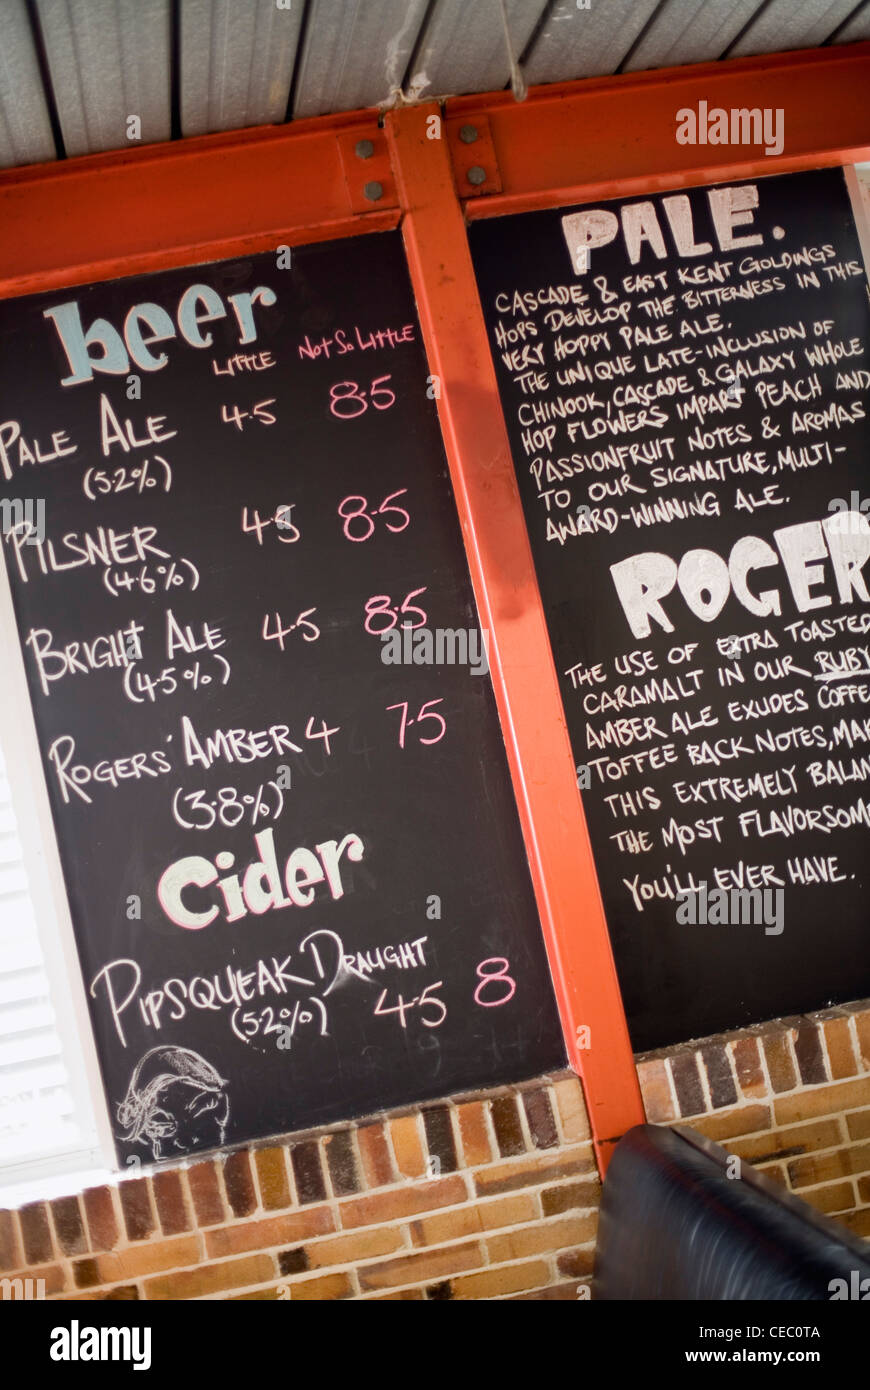 beer
LITTLE NOT SO LITTLE
PALE ALE 4.5 8.5
(5.2%)
PILSNER 4.5 8.5
(4.6%)
BRIGHT ALE 4.5 8.5
(4.5%)
ROGERS' AMBER 4 7.5
(3.8%)
cider
PIPSQUEAK DRAUGHT
(5.2%) 4.5 8
PALE.
CASCADE & EAST KENT GOLDINGS
HOPS DEVELOP THE BITTERNESS IN THIS
VERY HOPPY PALE ALE.
THE UNIQUE LATE-INCLUSION OF
CHINOOK, CASCADE & GALAXY WHOLE
HOP FLOWERS IMPART PEACH AND
PASSIONFRUIT NOTES & AROMAS
TO OUR SIGNATURE, MULTI-
AWARD-WINNING ALE.
ROGER
THE USE OF EXTRA TOASTED
CARAMALT IN OUR RUBY
AMBER ALE EXUDES COFFE
TOFFEE BACK NOTES, MAK
THIS EXTREMELY BALAN
THE MOST FLAVORSOME
YOU'LL EVER HAVE.
alamy
alamy stock photo
CEC0TA
www.alamy.com